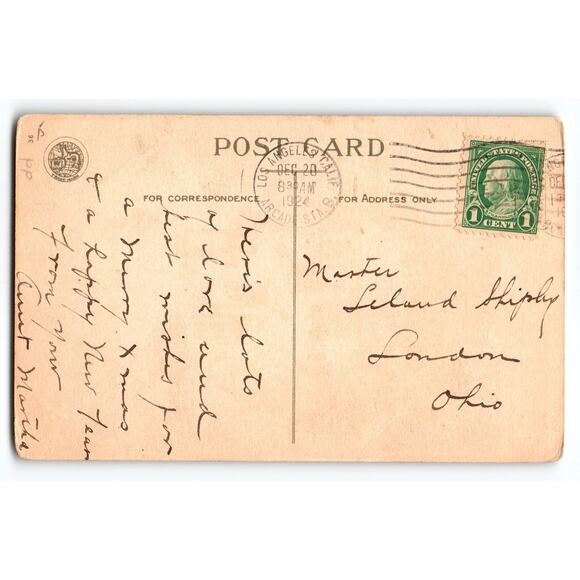 POST CARD
FOR CORRESPONDENCE
FOR ADDRESS ONLY
LOS ANGELES CALIF
DEC 20
8 30 AM
1924
ARCADE STA.
UNITED STATES POSTAGE
1 CENT 1
Here's lots
of love and
best wishes for
a Merry Xmas
& a happy New Year
From your
Aunt Martha
Master
Leland Shipley
London
Ohio
PP
36